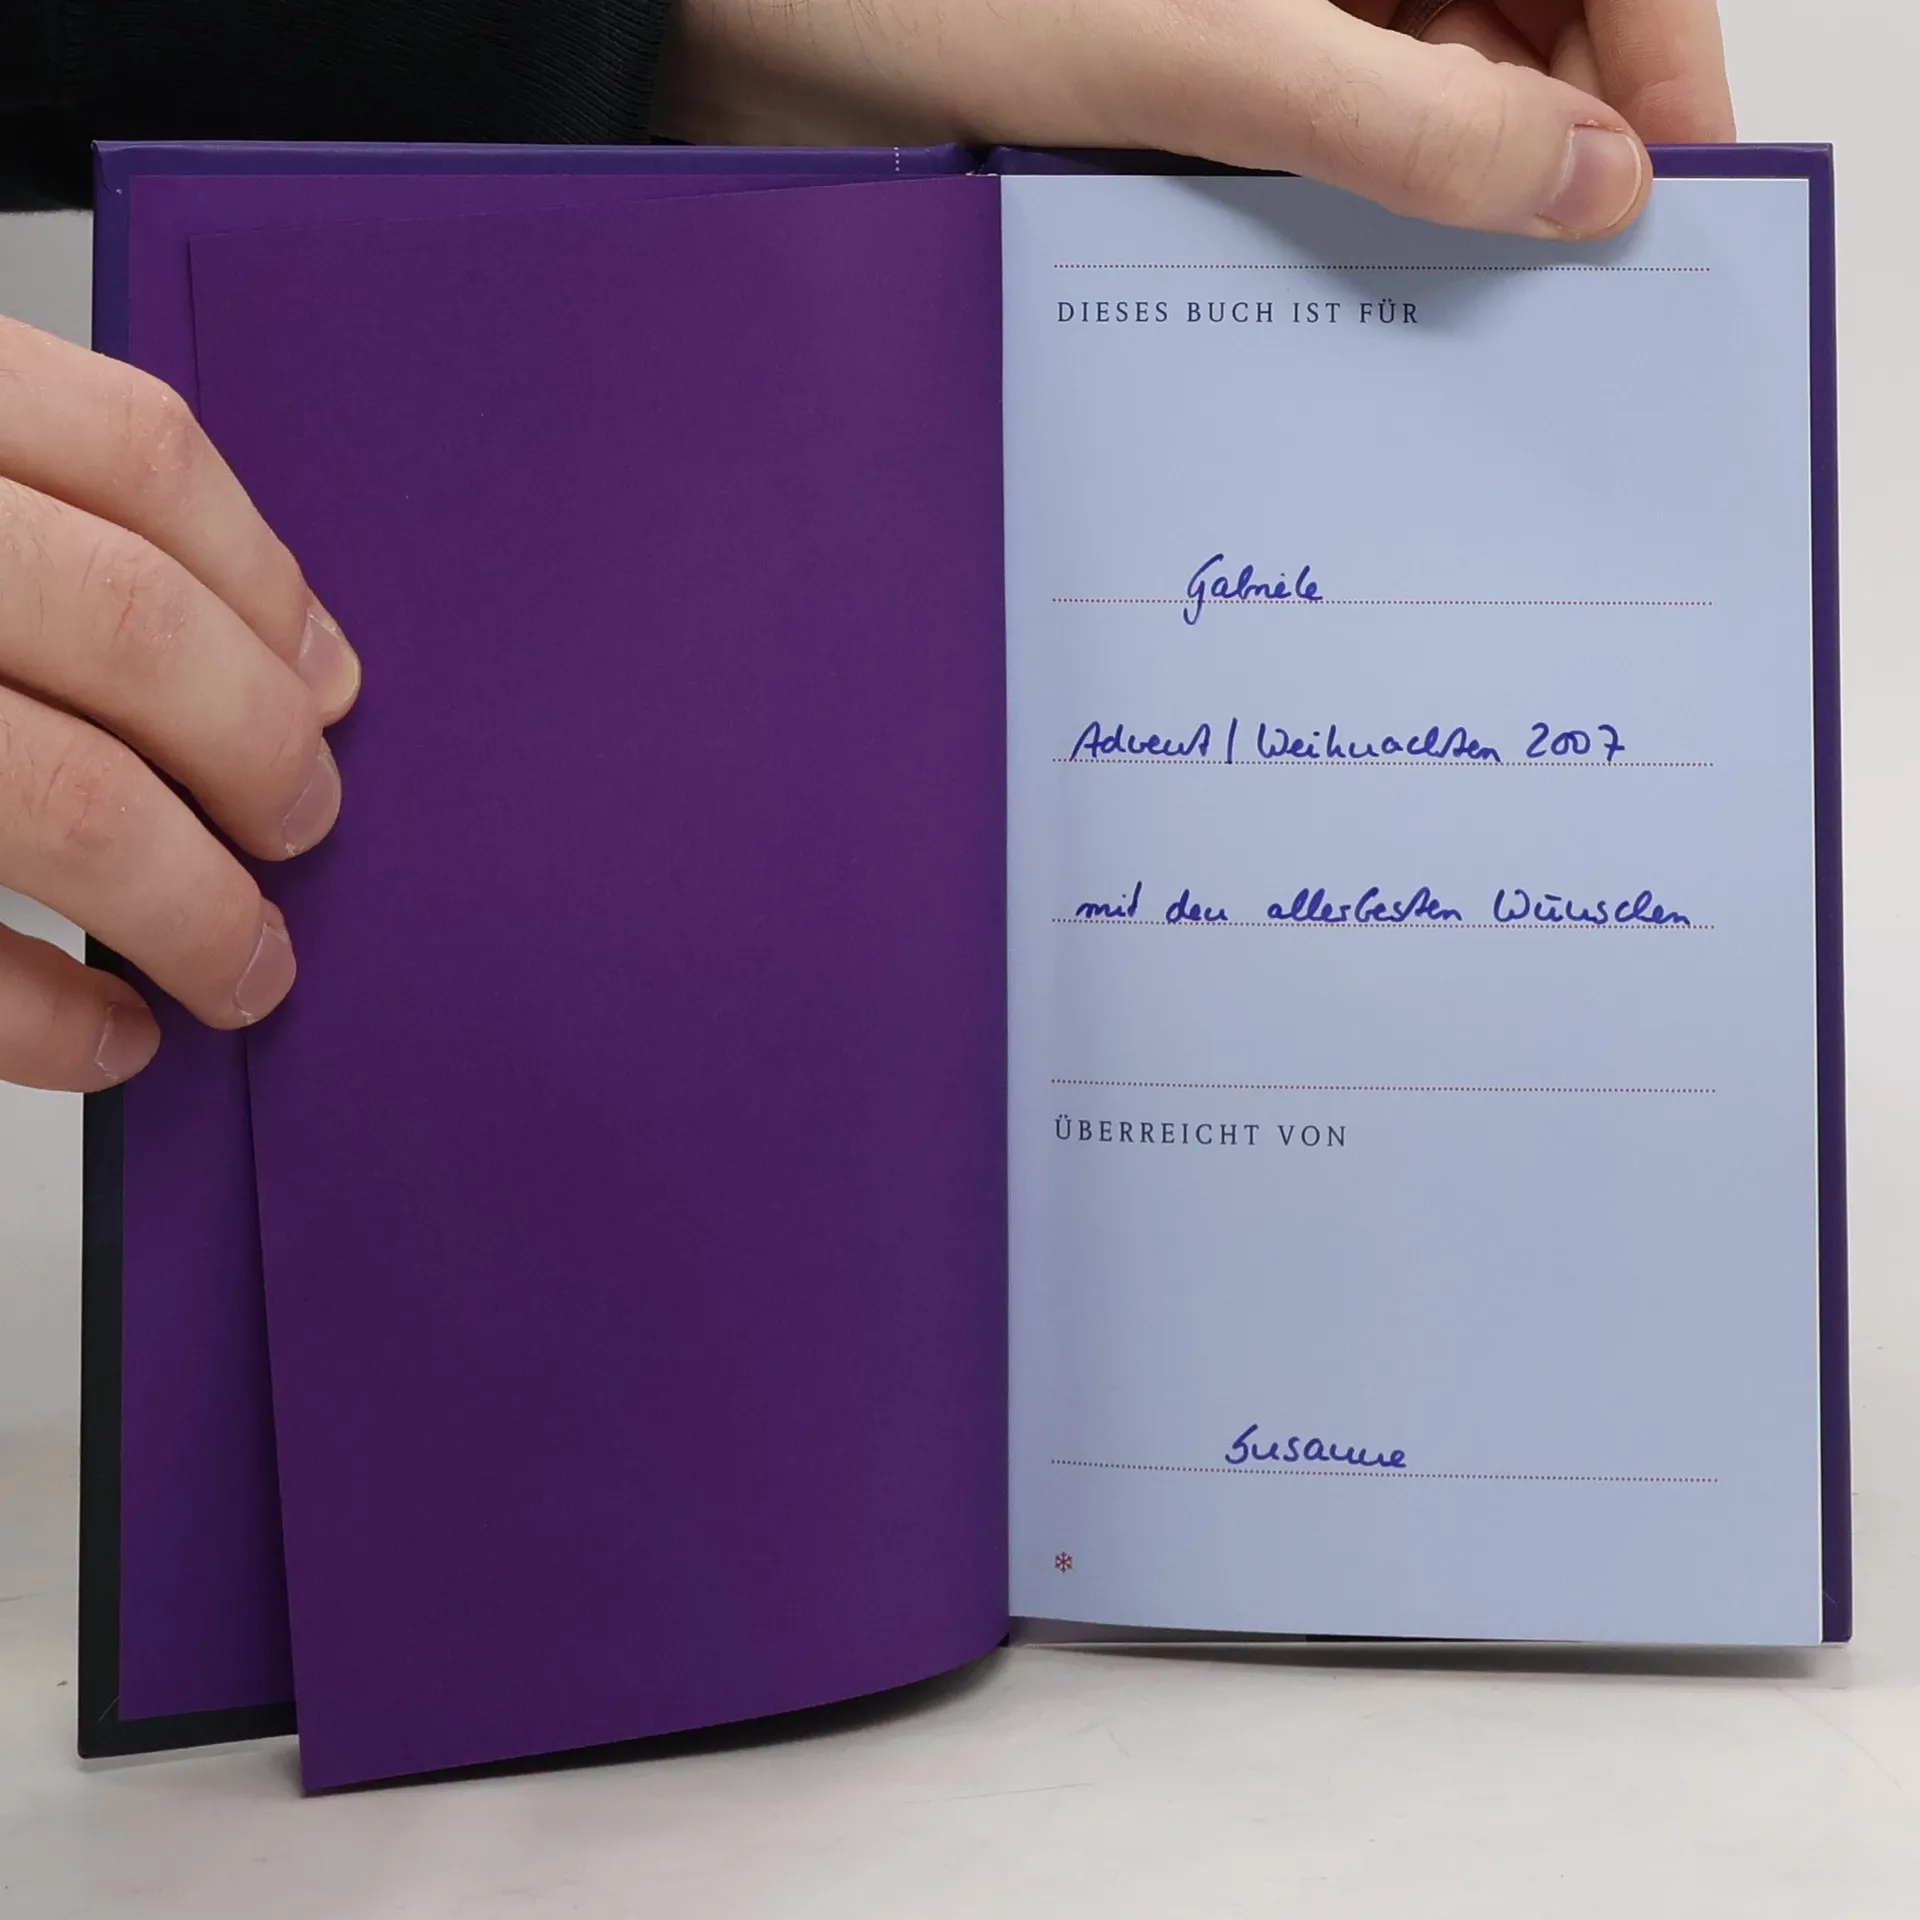 DIESES BUCH IST FÜR
Gabriele
Advent / Weihnachten 2007
mit den allerbesten Wünschen
ÜBERREICHT VON
Susanne